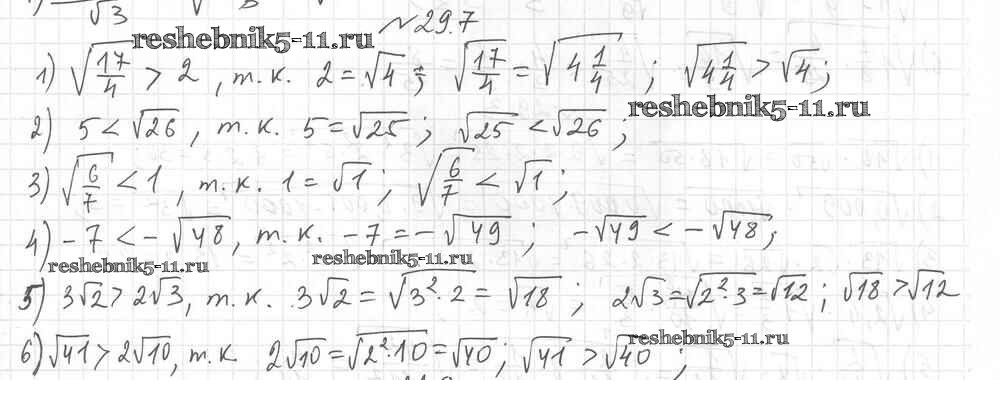 √3
№29.7
reshebnik5-11.ru
1) √(17/4) > 2, т.к. 2 = √4; √(17/4) = √(4 1/4); √(4 1/4) > √4;
reshebnik5-11.ru
2) 5 < √26, т.к. 5 = √25; √25 < √26;
3) √(6/7) < 1, т.к. 1 = √1; √(6/7) < √1;
4) -7 < -√48, т.к. -7 = -√49; -√49 < -√48;
reshebnik5-11.ru reshebnik5-11.ru
5) 3√2 > 2√3, т.к. 3√2 = √(3²·2) = √18; 2√3 = √(2²·3) = √12; √18 > √12
reshebnik5-11.ru
6) √41 > 2√10, т.к 2√10 = √(2²·10) = √40; √41 > √40;